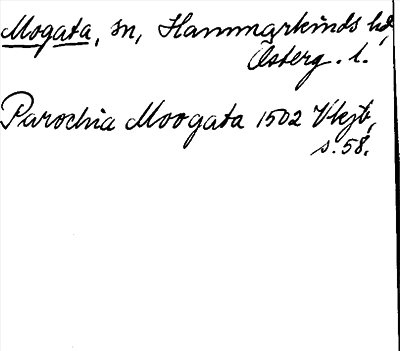 Mogata, sn, Hammarkinds hd,
Österg. l.
Parochia Moogata 1502 Vkjb,
s. 58.